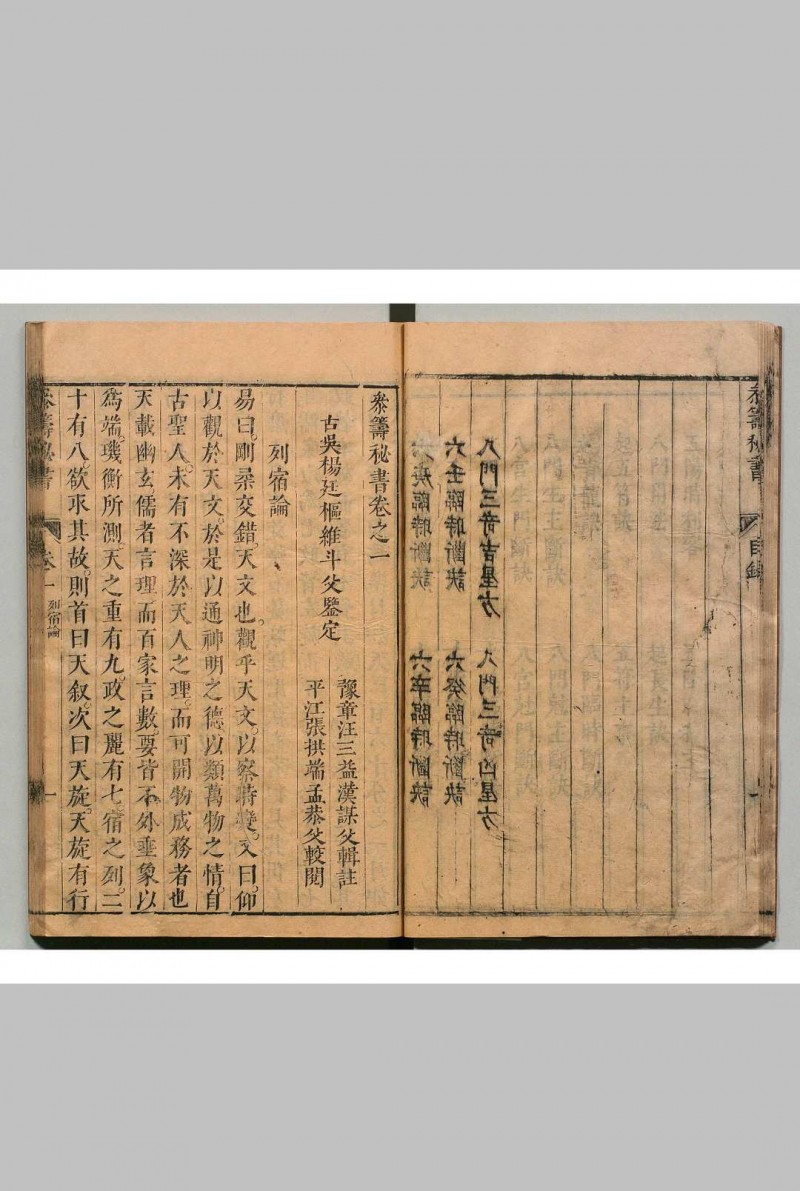 叅籌秘書
目錄
一
八門三奇吉星方　八門三奇凶星方
六壬臨時斷訣　六癸臨時斷訣
六庚臨時斷訣　六辛臨時斷訣
叅籌秘書卷之一
古吳楊廷樞維斗父鑒定
豫章汪三益漢謀父輯註
平江張拱端孟恭父較閱
列宿論
易曰。剛柔交錯。天文也。觀乎天文。以察時變。又曰仰
以觀於天文。於是以通神明之德。以類萬物之情。自
古聖人。未有不深於天人之理。而可開物成務者也。
天載幽玄。儒者言理。而百家言數。要皆不外垂象以
爲端。璣衡所測。天之重有九。政之麗有七。宿之列二
十有八。欲求其故。則首曰天叙。次曰天旋。天旋有行
叅籌秘書
卷一
列宿論
一